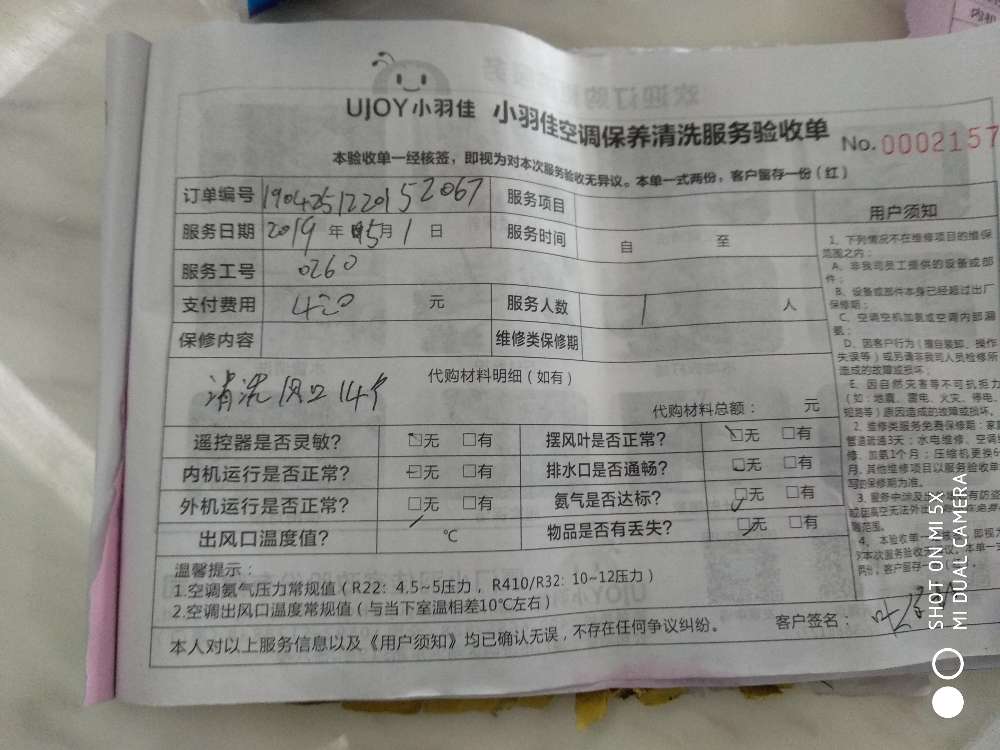 UJOY小羽佳 小羽佳空调保养清洗服务验收单
No. 0002157
本验收单一经核签，即视为对本次服务验收无异议。本单一式两份，客户留存一份（红）
订单编号 190425122015 2067 服务项目
服务日期 2019 年 5月 1 日 服务时间 自 至
服务工号 0260
支付费用 420 元 服务人数 1 人
保修内容 维修类保修期
代购材料明细（如有）
清洗风口14个
代购材料总额： 元
遥控器是否灵敏？ □无 □有 摆风叶是否正常？ □无 □有
内机运行是否正常？ □无 □有 排水口是否通畅？ □无 □有
外机运行是否正常？ □无 □有 氨气是否达标？ □无 □有
出风口温度值？ ℃ 物品是否有丢失？ □无 □有
温馨提示：
1.空调氨气压力常规值（R22：4.5~5压力，R410/R32：10~12压力）
2.空调出风口温度常规值（与当下室温相差10℃左右）
本人对以上服务信息以及《用户须知》均已确认无误，不存在任何争议纠纷。
客户签名：
用户须知
1、下列情况不在维修项目的维保
范围之内：
A、非我司员工提供的设备或部
件；
B、设备或部件本身已经超过出厂
保修期；
C、空调空机加氨或空调内部漏
氨；
D、因客户行为（擅自装卸、操作
失误等）或另请非我司人员检修所
造成的故障或损坏；
E、因自然灾害等不可抗拒力
（如：地震、雷电、火灾、停电、
短路等）原因造成的故障或损坏。
2、维修类服务免费保修期：家庭
管道疏通3天；水电维修、空调维
修、加氨1个月；压缩机更换6
月，其他维修项目以服务验收单
写的保修期为准。
SHOT ON MI 5X
MI DUAL CAMERA